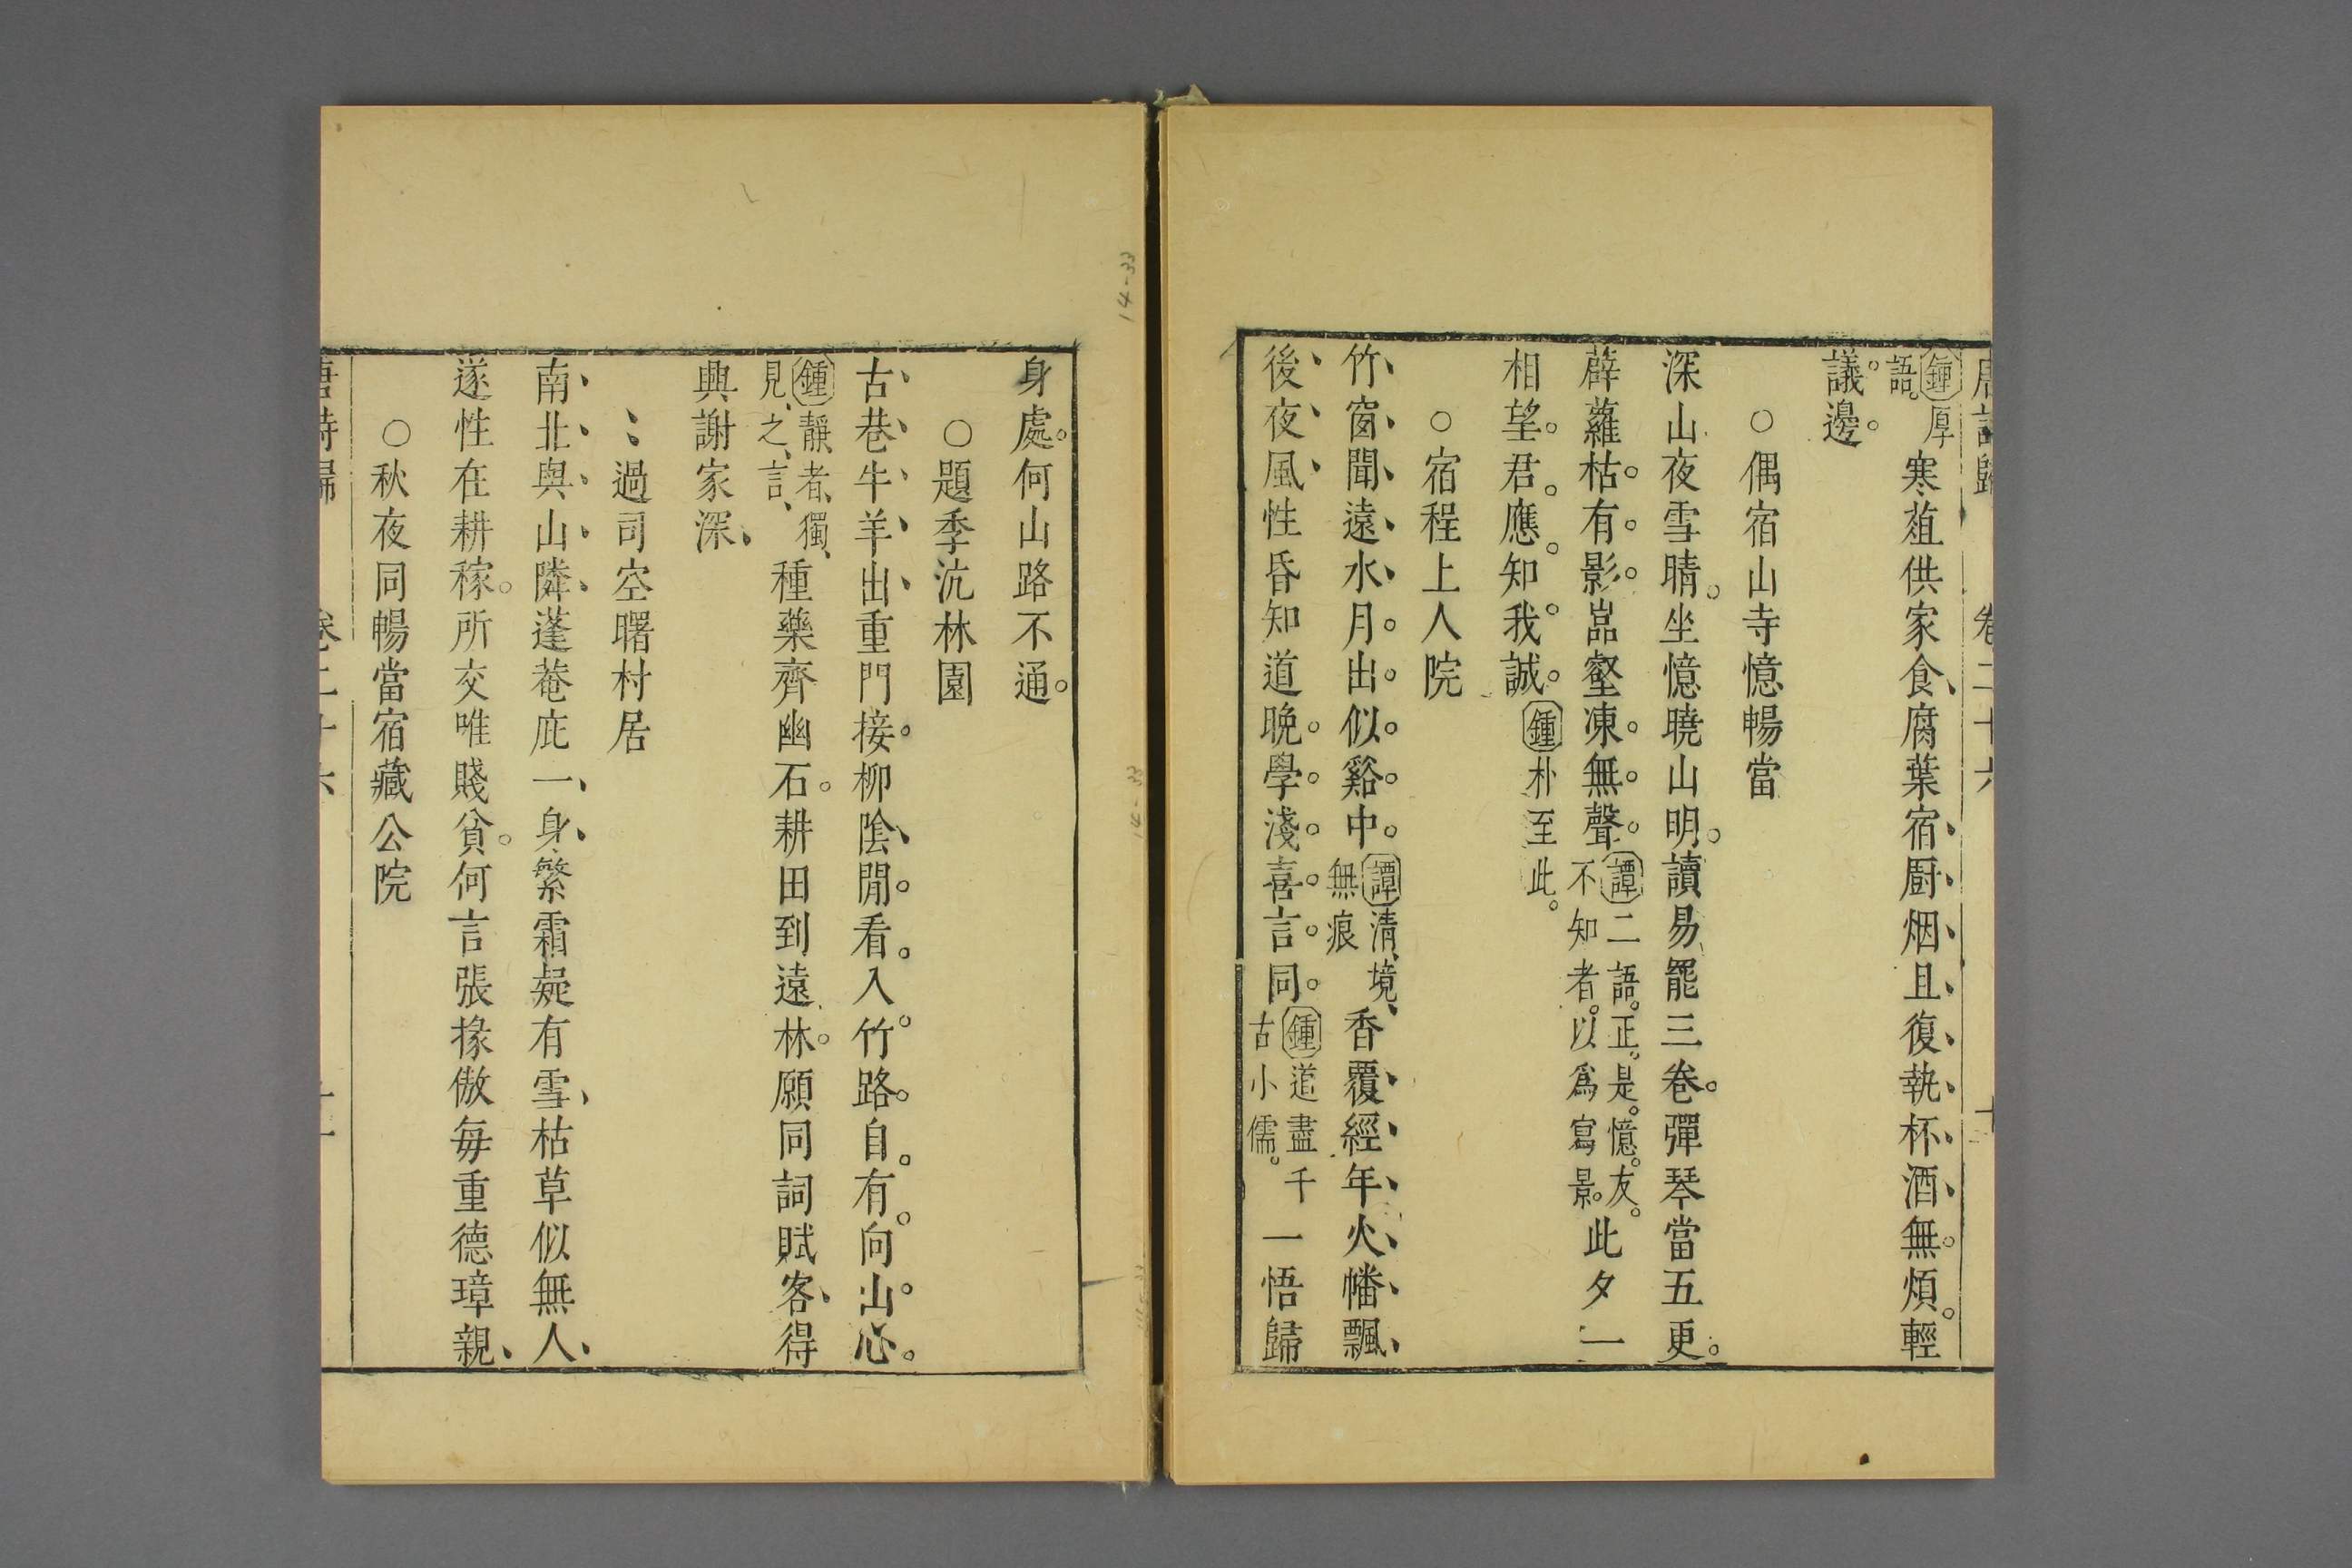 唐詩歸 卷二十六 十
鍾厚語寒葅供家食腐葉宿厨烟且復執杯酒無煩輕
議邊
○偶宿山寺憶暢當
深山夜雪晴坐憶曉山明讀易罷三卷彈琴當五更
薜蘿枯有影嵓壑凍無聲譚二語正是憶友不知者以爲寫景此夕一
相望君應知我誠鍾朴至此
○宿程上人院
竹窗聞遠水月出似谿中譚清境無痕香覆經年火幡飄
後夜風性昏知道晚學淺喜言同鍾道盡千古小儒一悟歸
身處何山路不通
○題季沆林園
古巷牛羊出重門接柳陰閒看入竹路自有向山心
鍾靜者獨見之言種藥齊幽石耕田到遠林願同詞賦客得
興謝家深
過司空曙村居
南北與山隣蓬菴庇一身繁霜疑有雪枯草似無人
遂性在耕稼所交唯賤貧何言張掾傲每重德璋親
○秋夜同暢當宿藏公院
唐詩歸 卷二十六 十一